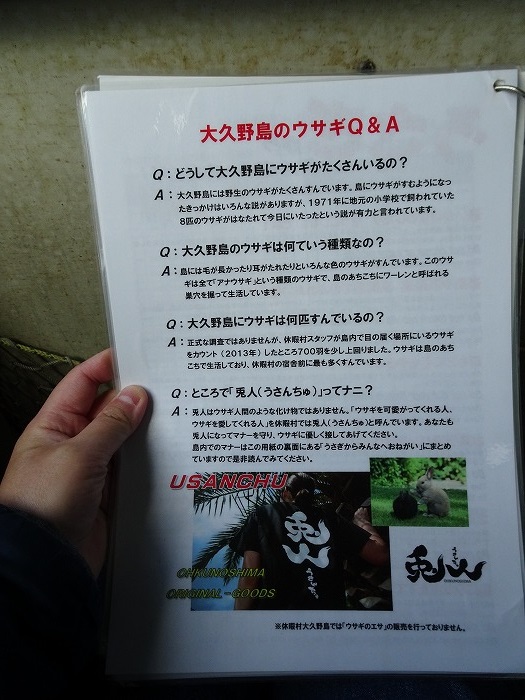 大久野島のウサギQ&A
Q：どうして大久野島にウサギがたくさんいるの？
A：大久野島には野生のウサギがたくさんすんでいます。島にウサギがすむようになっ
たきっかけはいろんな説がありますが、1971年に地元の小学校で飼われていた
8匹のウサギがはなたれて今日にいたったという説が有力と言われています。
Q：大久野島のウサギは何ていう種類なの？
A：島には毛が長かったり耳がたれたりといろんな色のウサギがすんでいます。このウサ
ギは全て「アナウサギ」という種類のウサギで、島のあちこちにワーレンと呼ばれる
巣穴を掘って生活しています。
Q：大久野島にウサギは何匹すんでいるの？
A：正式な調査ではありませんが、休暇村スタッフが島内で目の届く場所にいるウサギ
をカウント（2013年）したところ700羽を少し上回りました。ウサギは島のあち
こちで生活しており、休暇村の宿舎前に最も多くすんでいます。
Q：ところで「兎人（うさんちゅ）」ってナニ？
A：兎人はウサギ人間のような化け物ではありません。「ウサギを可愛がってくれる人、
ウサギを愛してくれる人」を休暇村では兎人（うさんちゅ）と呼んでいます。あなたも
兎人になってマナーを守り、ウサギに優しく接してあげてください。
島内でのマナーはこの用紙の裏面にある「うさぎからみんなへおねがい」にまとめ
ていますので是非読んでみてください。
USANCHU
兎人
うさんちゅ
OHKUNOSHIMA
ORIGINAL-GOODS
兎人
うさんちゅ
※休暇村大久野島では「ウサギのエサ」の販売を行っておりません。